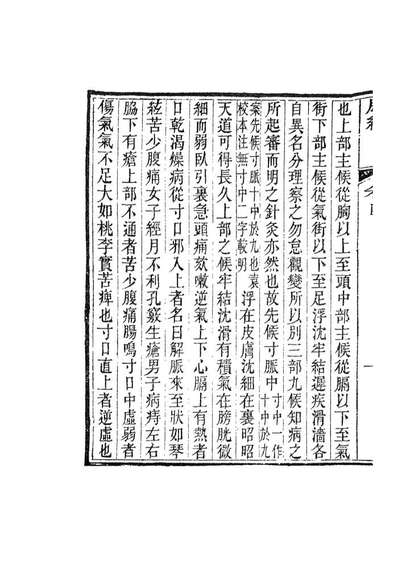 也上部主候從胸以上至頭中部主候從膈以下至氣
街下部主候從氣街以下至足浮沈牢結遲疾滑濇各
自異名分理察之勿怠觀變所以別三部九候知病之
所起審而明之針灸亦然也故先候寸脈中
寸中一作
十中於九
案先候寸脈十中於九也袁
校本注無寸中二字較明
浮在皮膚沈細在裏昭昭
天道可得長久上部之候牢結沈滑有積氣在膀胱微
細而弱臥引裏急頭痛欬嗽逆氣上下心膈上有熱者
口乾渴燥病從寸口邪入上者名曰解脈來至狀如琴
弦苦少腹痛女子經月不利孔竅生瘡男子病痔左右
脇下有瘡上部不通者苦少腹痛腸鳴寸口中虛弱者
傷氣氣不足大如桃李實苦痺也寸口直上者逆虛也